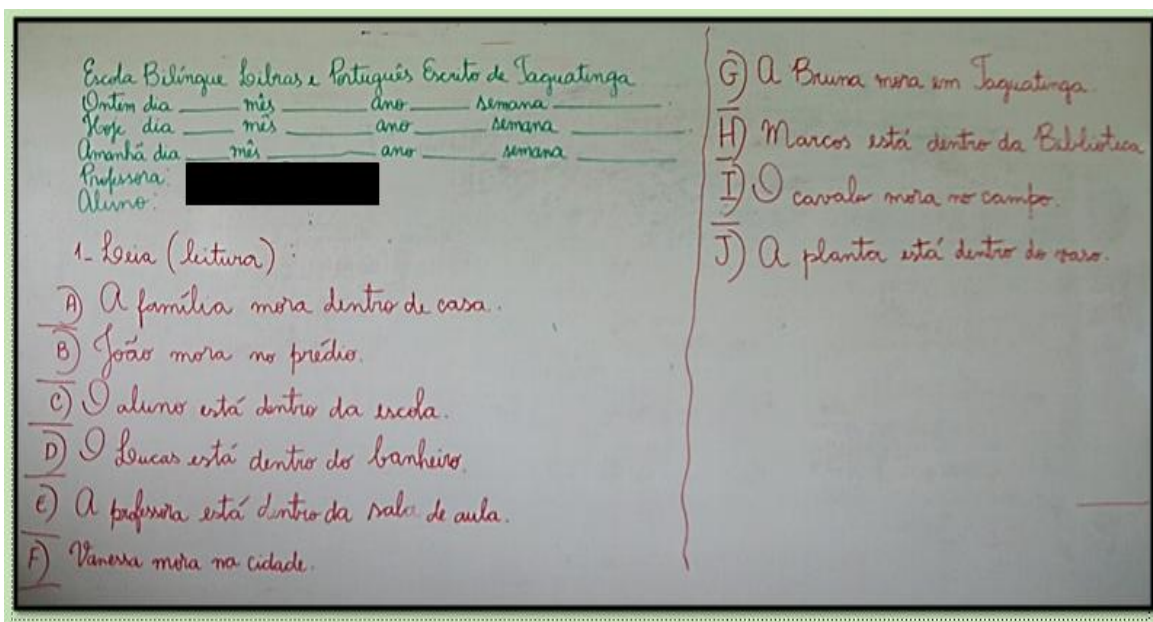 Escola Bilíngue Libras e Português Escrito de Taguatinga
Ontem dia ____ mês ______ ano ____ semana ________.
Hoje dia ____ mês ______ ano ____ semana ________.
Amanhã dia ____ mês ______ ano ____ semana ________
Professora:
Aluno:
1- Leia (leitura):
A) A família mora dentro de casa.
B) João mora no prédio.
C) O aluno está dentro da escola.
D) O Lucas está dentro do banheiro.
E) A professora está dentro da sala de aula.
F) Vanessa mora na cidade.
G) A Bruna mora em Taguatinga.
H) Marcos está dentro da Biblioteca
I) O cavalo mora no campo.
J) A planta está dentro do vaso.